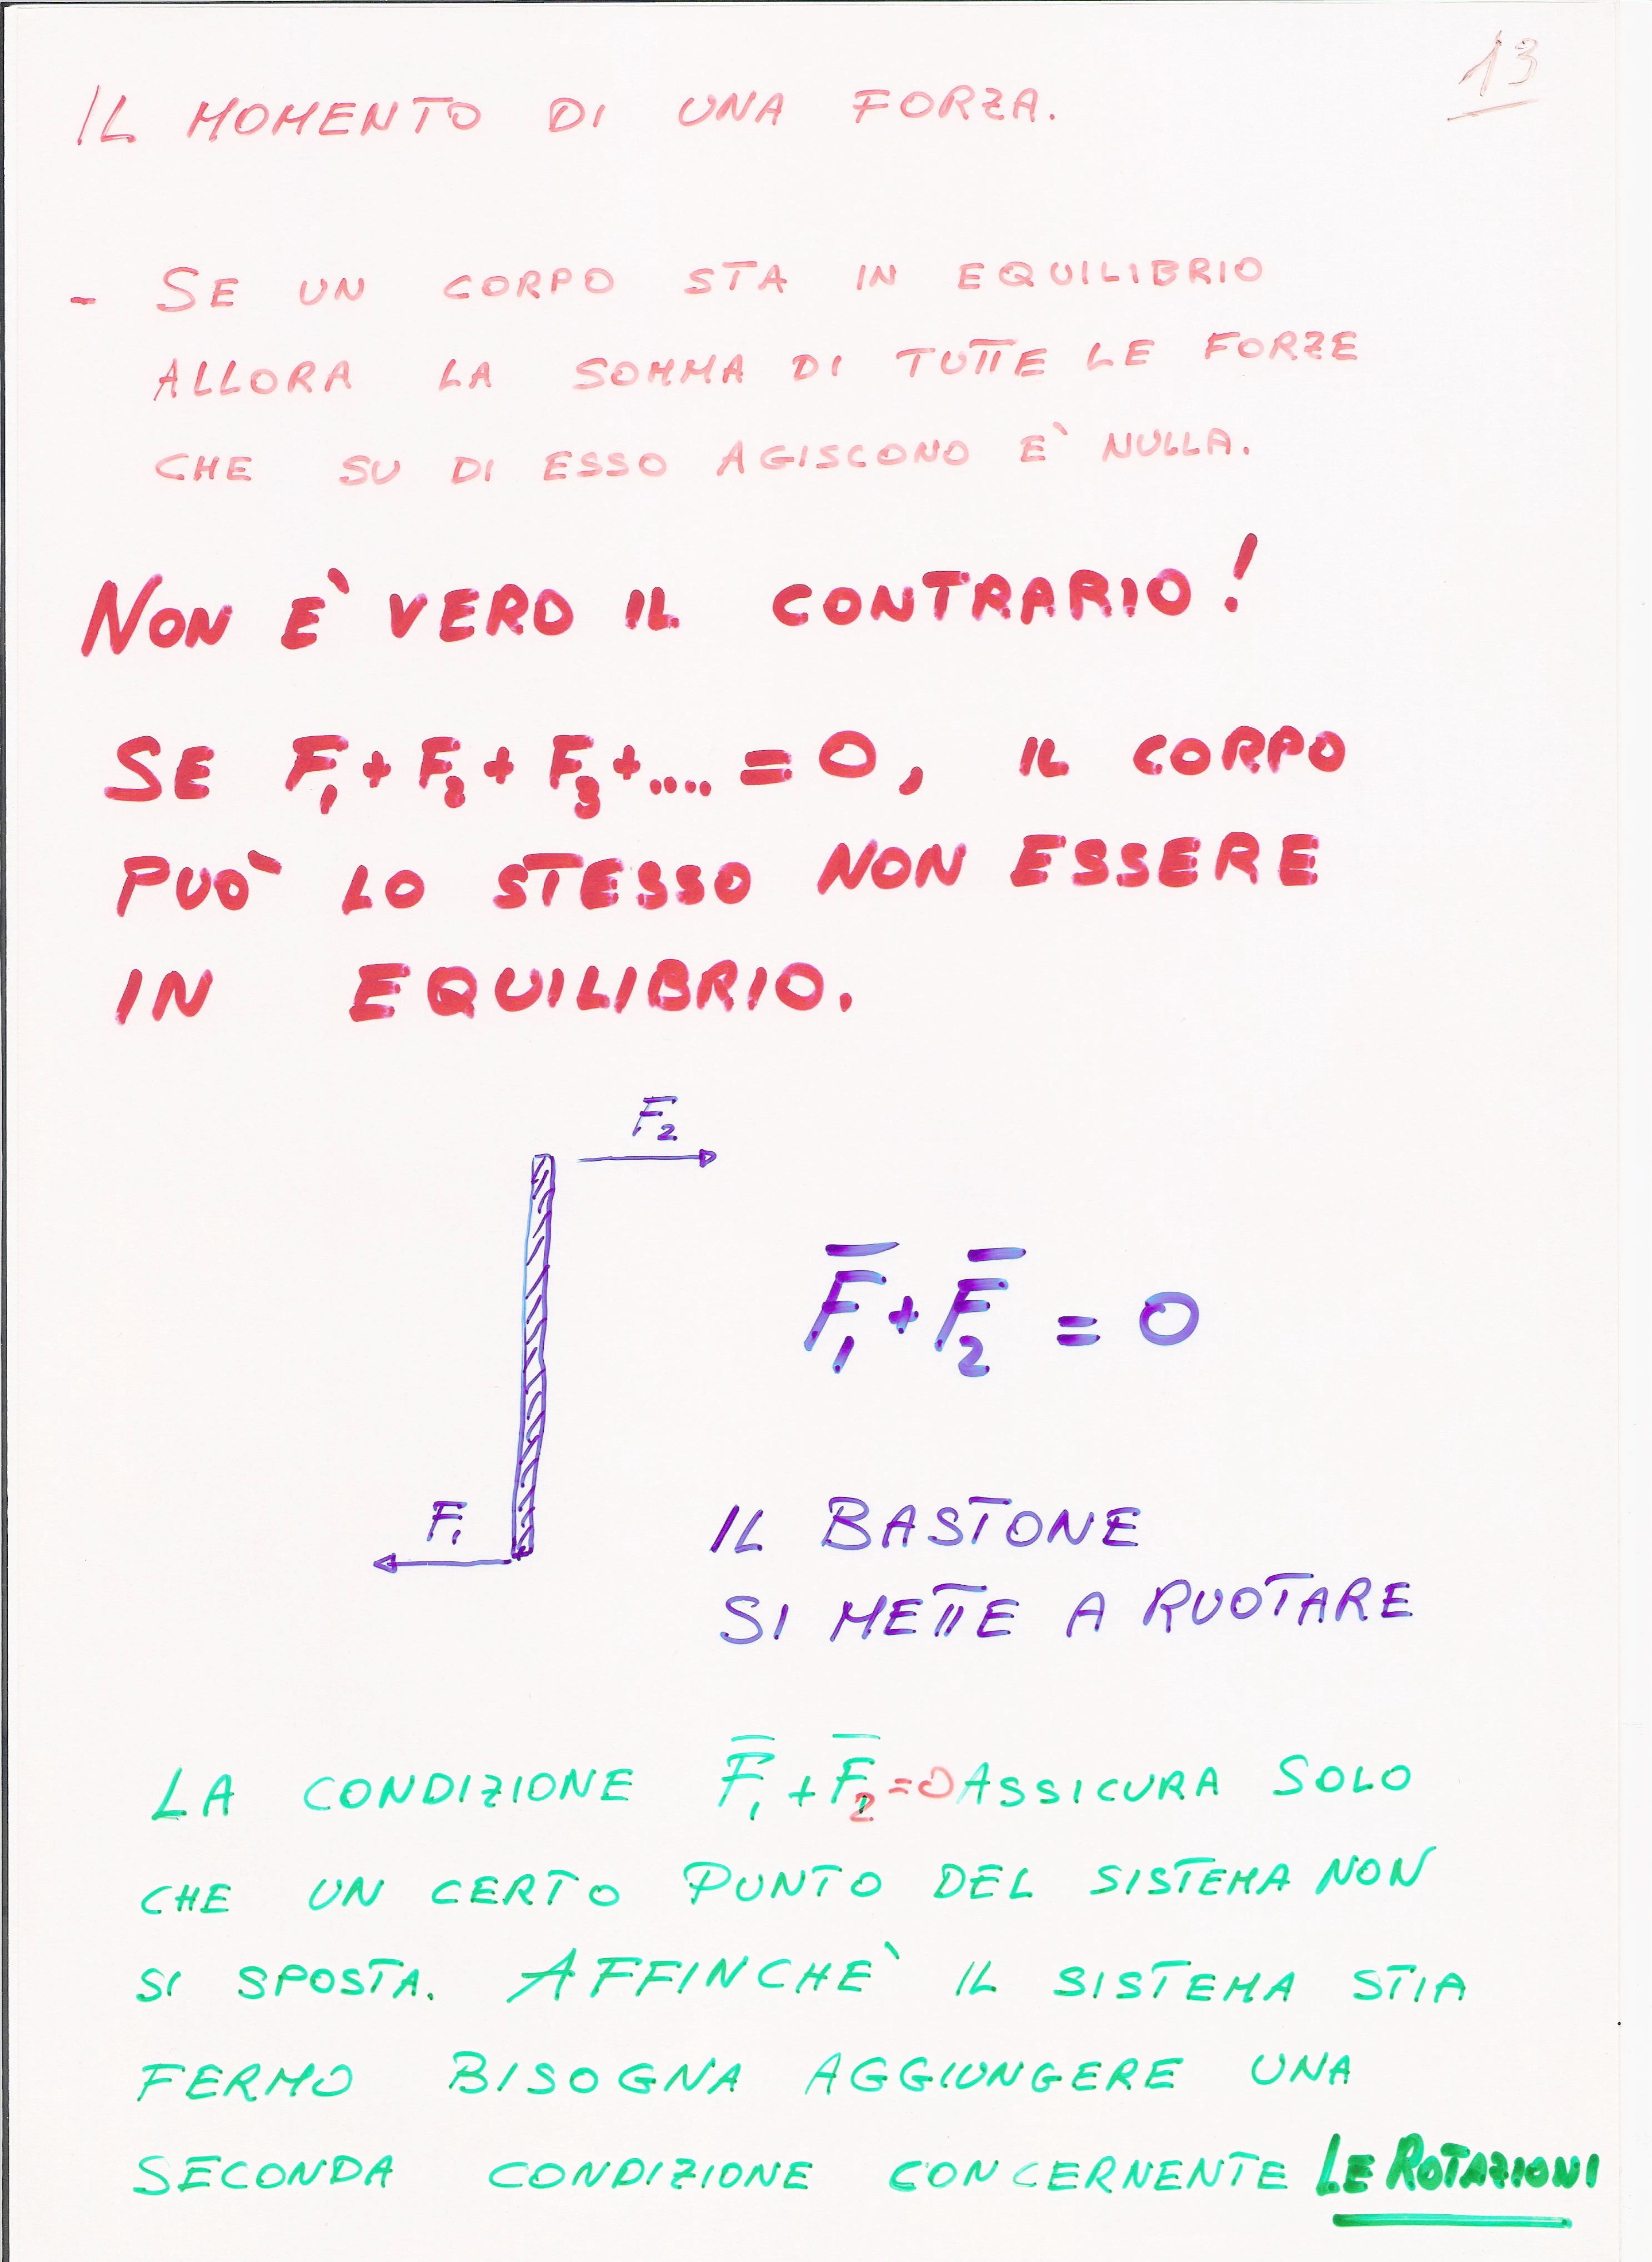 13
IL MOMENTO DI UNA FORZA.
- SE UN CORPO STA IN EQUILIBRIO
ALLORA LA SOMMA DI TUTTE LE FORZE
CHE SU DI ESSO AGISCONO E` NULLA.
NON E` VERO IL CONTRARIO!
SE F₁+F₂+F₃+....=0, IL CORPO
PUO` LO STESSO NON ESSERE
IN EQUILIBRIO.
F₂
F̅₁+F̅₂=0
F₁
IL BASTONE
SI METTE A RUOTARE
LA CONDIZIONE F̅₁+F̅₂=0 ASSICURA SOLO
CHE UN CERTO PUNTO DEL SISTEMA NON
SI SPOSTA. AFFINCHE` IL SISTEMA STIA
FERMO BISOGNA AGGIUNGERE UNA
SECONDA CONDIZIONE CONCERNENTE LE ROTAZIONI